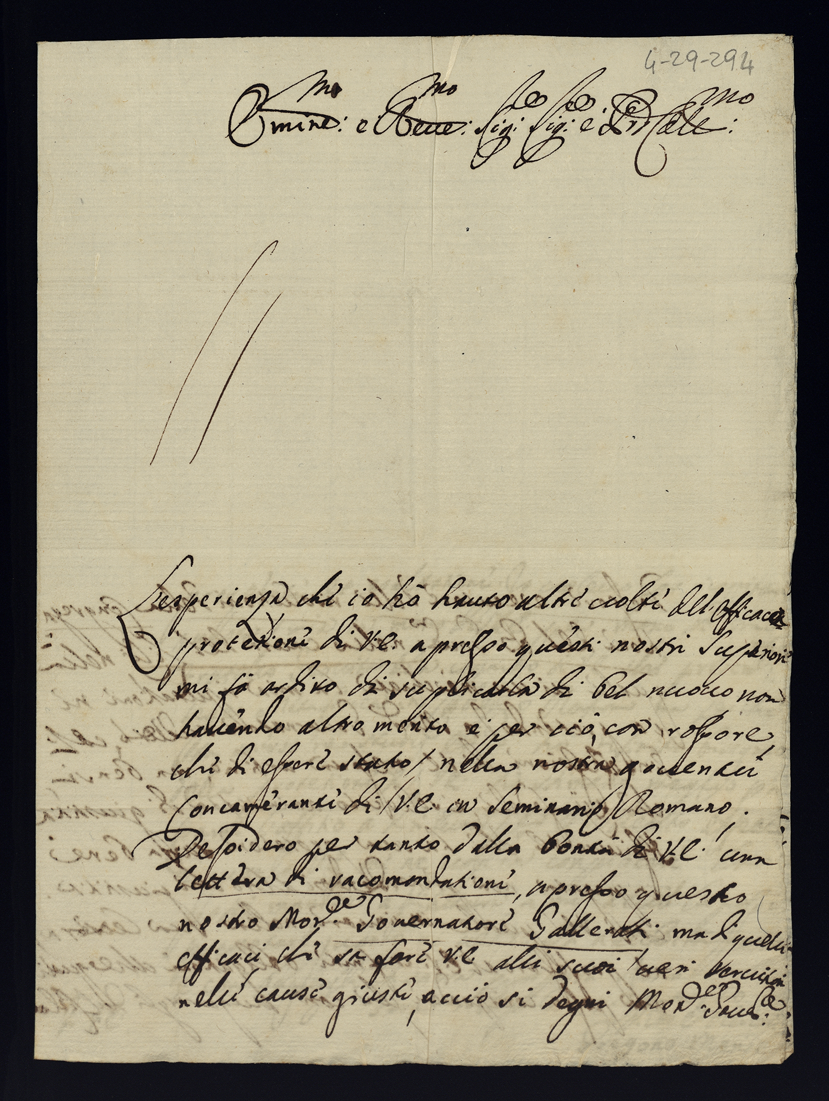 4-29-294
Emine:mo e Reve:mo Sig: Sig: e Pri Colemo:
L'esperienza chi io hò hauto altri volti del efficace
protezioni di V.E. apresso questi nostri Superiori
mi fà ardito di suplicarla di bel nuouo non
hauendo altro merito e per ciò, con rossore,
chi di esseri stato nella nostra giouentù
Concameranti di V.E. in Seminario Romano.
Desidero per tanto dalla bontà di V.E. una
lettera di racomondationi, apresso questo
nostro Monre Gouernatori Gallerati ma di quelli
efficaci chi sa fari V.E. alli suoi ueri seruitori
nelli causi giusti, acciò si degni Monre Goure: